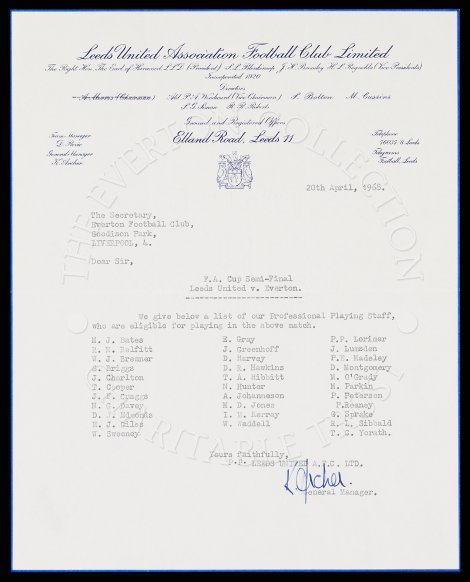 Leeds United Association Football Club Limited
The Right Hon. The Earl of Harewood, LL.D. (President) S.L. Blenkinsop J.H. Bromley H.L. Reynolds (Vice Presidents)
Incorporated 1920
Directors
A. Morris (Chairman) Ald. P.A. Woodward (Vice Chairman) S. Bolton M. Cussins
S.G. Simon R.R. Roberts
Ground and Registered Offices
Elland Road, Leeds 11
Team Manager
D. Revie
General Manager
K. Archer
Telephone
76037/8 Leeds
Telegrams
Football, Leeds
20th April, 1968.
The Secretary,
Everton Football Club,
Goodison Park,
LIVERPOOL, 4.
Dear Sir,
F.A. Cup Semi-Final
Leeds United v. Everton.
We give below a list of our Professional Playing Staff,
who are eligible for playing in the above match.
M. J. Bates E. Gray P.P. Lorimer
R. N. Belfitt J. Greenhoff J. Lumsden
W. J. Bremner D. Harvey P.E. Madeley
S. Briggs D. R. Hawkins D. Montgomery
J. Charlton T. A. Hibbitt M. O'Grady
T. Cooper N. Hunter M. Parkin
J. F. Craggs A. Johanneson P. Peterson
N. G. Davey M. D. Jones P. Reaney
D. I. Edmonds I. M. Murray G. Sprake
M. J. Giles W. Waddell R. L. Sibbald
W. Sweeney T. C. Yorath.
Yours faithfully,
P.P. LEEDS UNITED A.F.C. LTD.
K Archer.
General Manager.
THE EVERTON COLLECTION
CHARITABLE TRUST